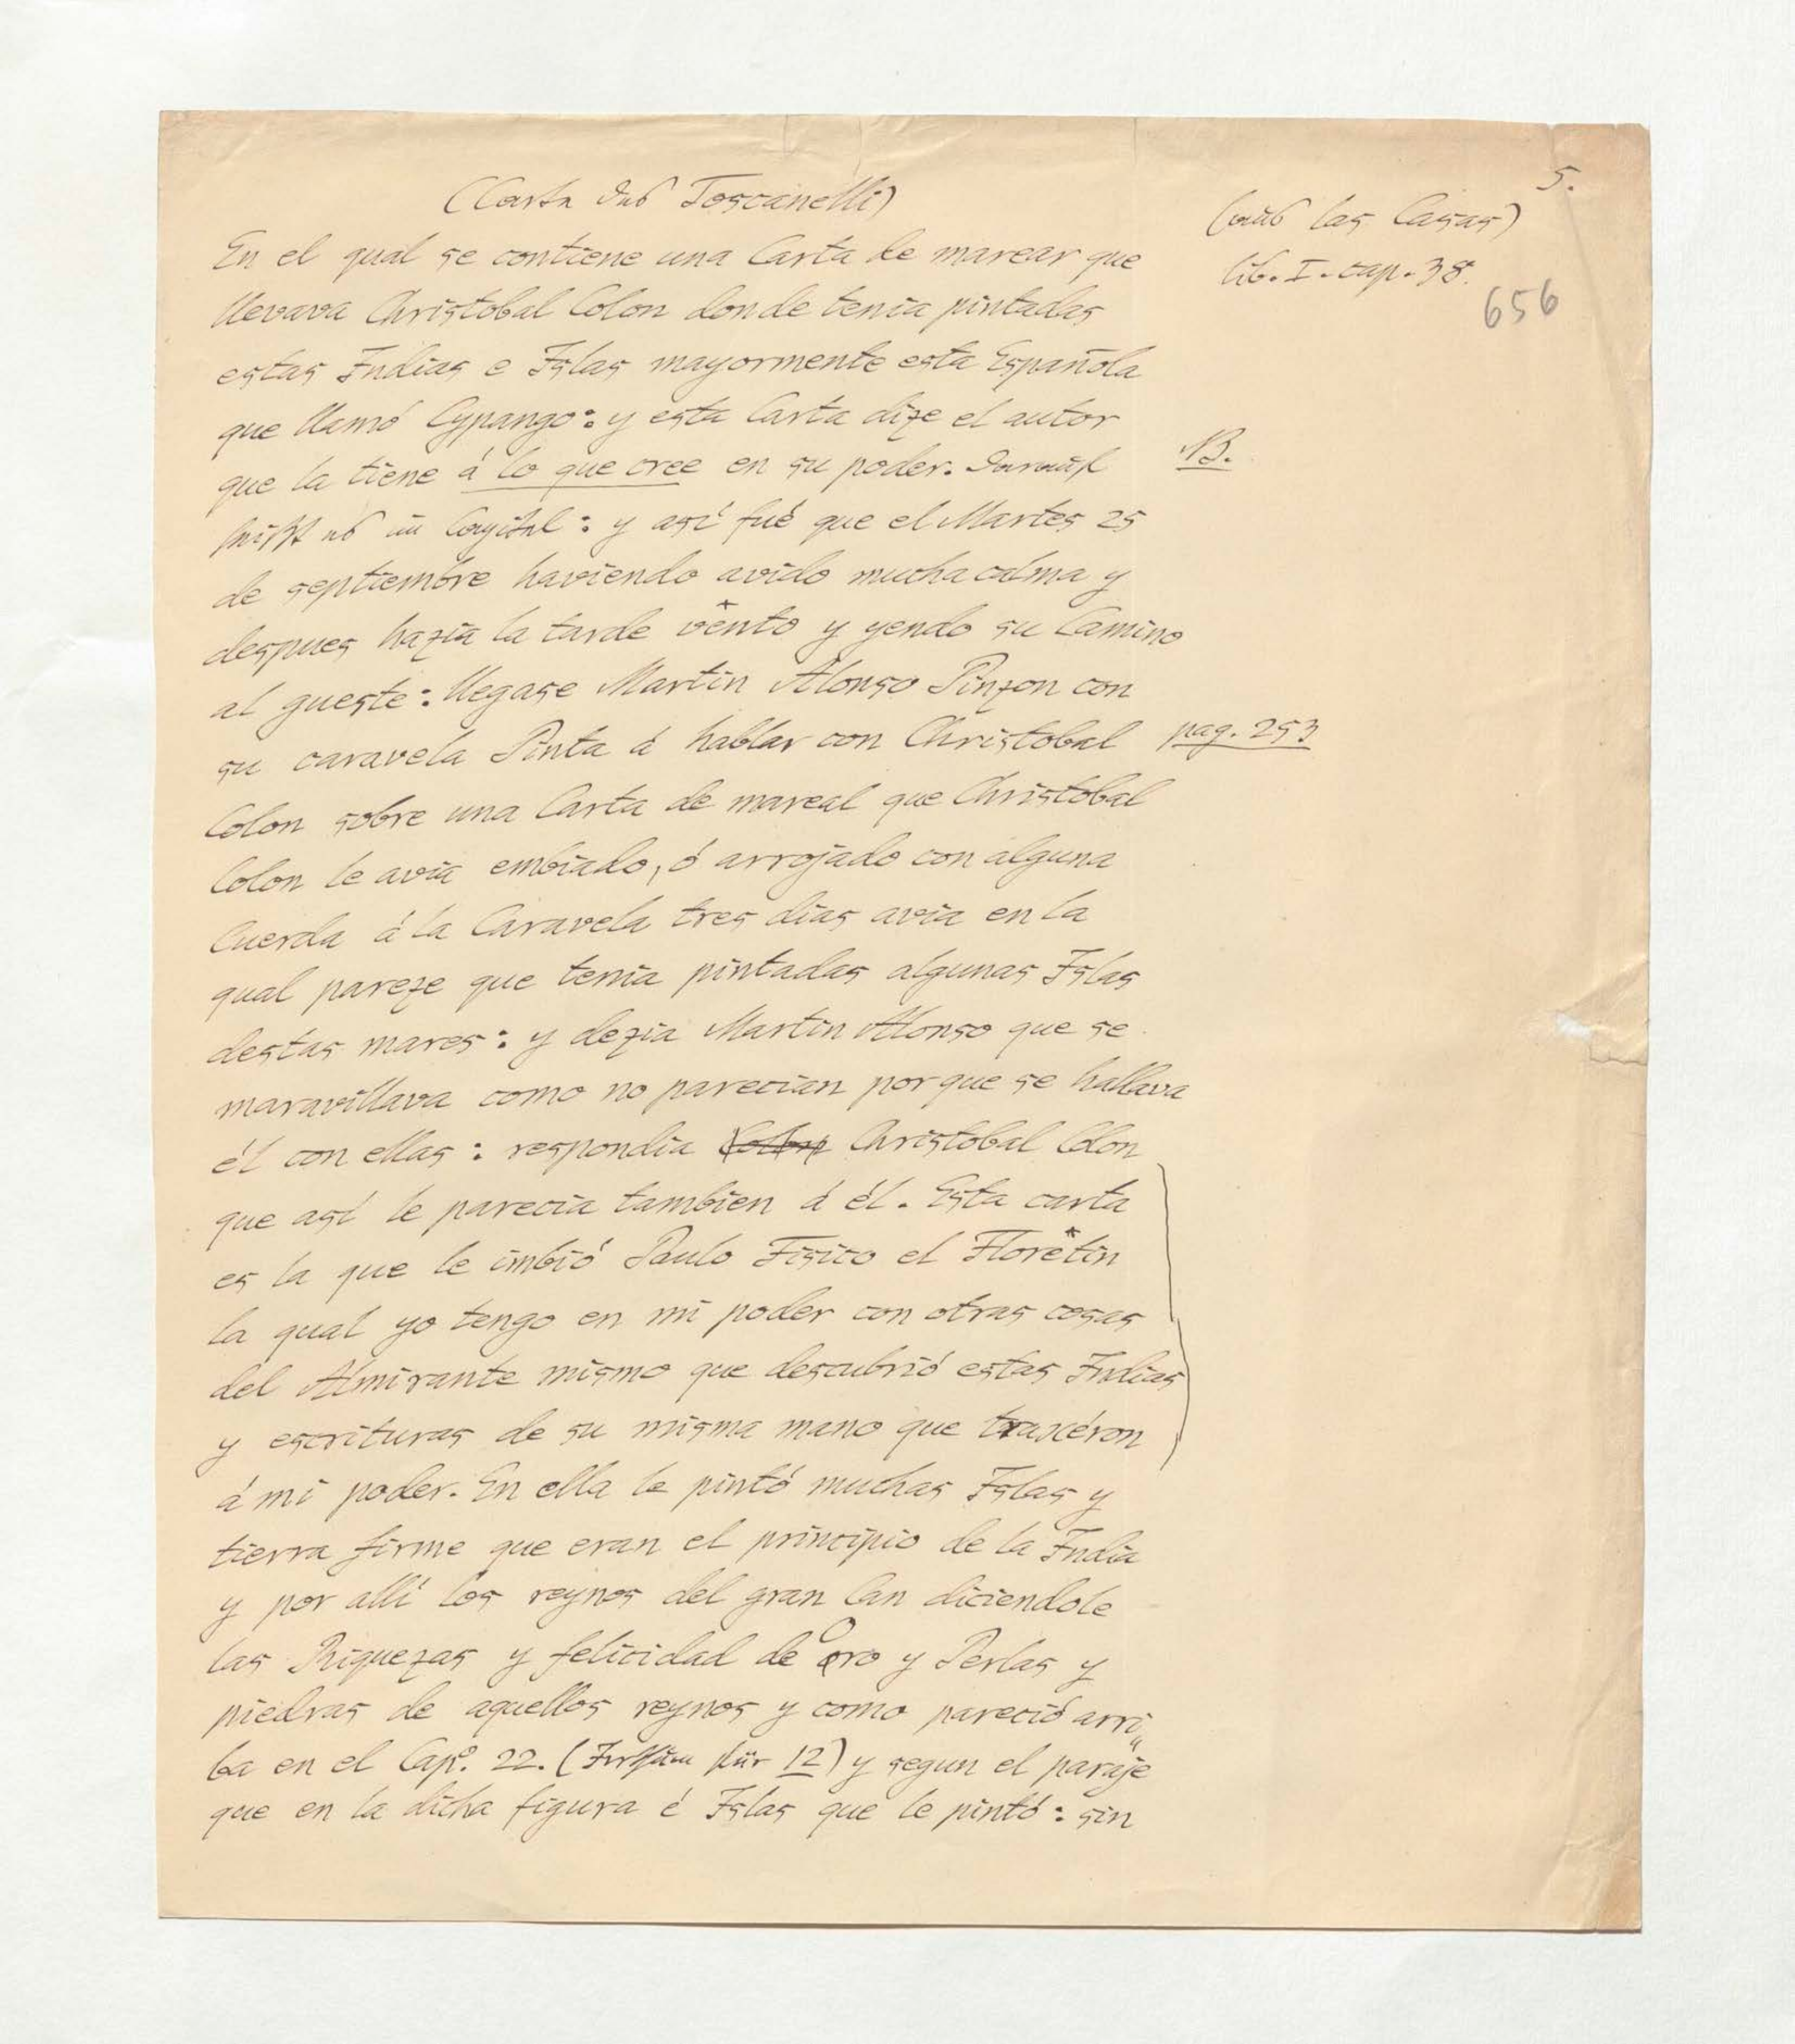 5.
(Carta des Toscanelli)
(aus las Casas)
lib. I. cap. 38.
656
En el qual se contiene una Carta de marear que
llevava Christobal Colon donde tenia pintadas
estas Indias e Islas mayormente esta Española
que llamó Cypango: y esta Carta dize el autor
que la tiene á lo que cree en su poder. Darauf
NB.
heißt es im Capitel: y así fué que el Martes 25
de septiembre haviendo avido mucha calma y
despues hazia la tarde vênto y yendo su Camino
al gueste: llegase Martin Alonso Pinzon con
su caravela Pinta á hablar con Christobal
pag. 253
Colon sobre una Carta de mareal que Christobal
Colon le avia embiado, ó arrojado con alguna
Cuerda á la Caravela tres dias avia en la
qual pareze que tenia pintadas algunas Islas
destas mares: y dezia Martin Alonso que se
maravillava como no parecian porque se hallava
él con ellas: respondia Colon Christobal Colon
que así le parecia tambien á él. Esta carta
es la que le imbió Paulo Fisico el Florêtin
la qual yo tengo en mi poder con otras cosas
del Almirante mismo que descubrió estas Indias
y escrituras de su misma mano que traxéron
á mi poder. En ella le pintó muchas Islas y
tierra firme que eran el principio de la India
y por allí los reynos del gran Can diciendole
las Riquezas y felicidad de oro y Perlas y
piedras de aquellos reynos y como pareció arri„
ba en el Cap.º 22. (Irrthum für 12) y segun el paraje
que en la dicha figura é Islas que le pintó: sin